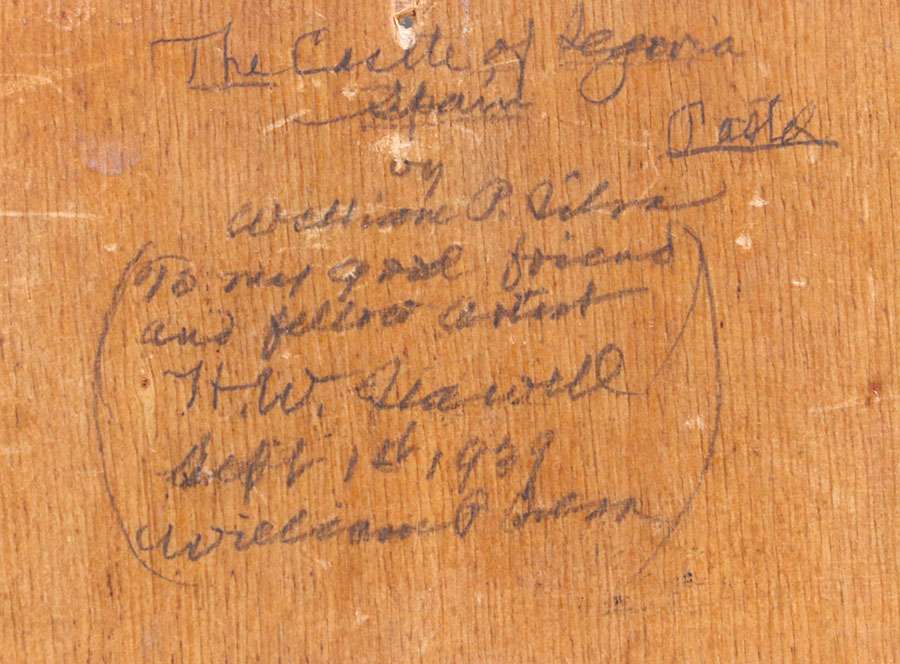 The Castle of Segovia
Spain
Pastel
by
William P. Silva
To my good friend
and fellow artist
H.W. Seawell
Sept 1st, 1939
William P. Silva